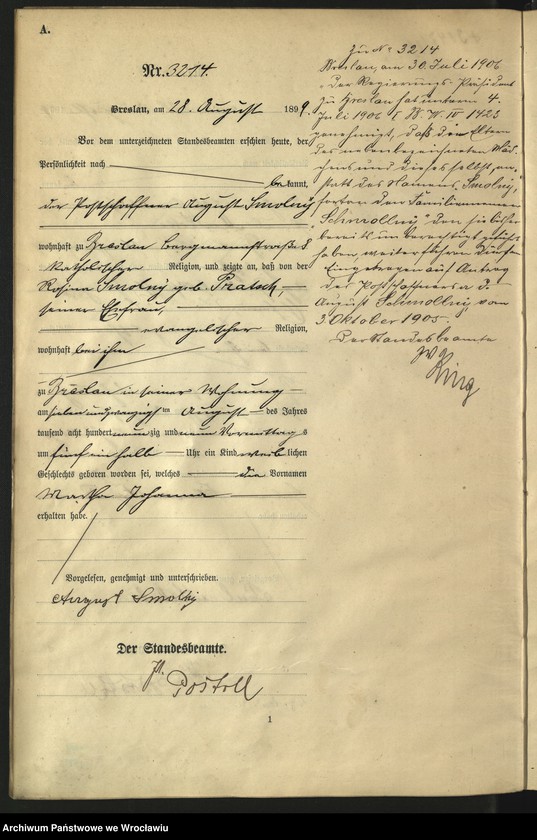 A.
Nr. 3214.
Breslau, am 28. August 1899.
Vor dem unterzeichneten Standesbeamten erschien heute, der
Persönlichkeit nach
bekannt,
der Postschaffner August Smolny
wohnhaft zu Breslau Bergmannstraße 8
katholischer Religion, und zeigte an, daß von der
Rosina Smolny geb. Pratsch,
seiner Ehefrau,
evangelischer Religion,
wohnhaft bei ihm
zu Breslau in seiner Wohnung
am sieben und zwanzigsten August des Jahres
tausend acht hundert neunzig und neun Vormittags
um fünf ein halb Uhr ein Kind weiblichen
Geschlechts geboren worden sei, welches die Vornamen
Martha Johanna
erhalten habe.
Vorgelesen, genehmigt und unterschrieben.
August Smolny
Der Standesbeamte.
Postell
1
Zu Nr 3214
Breslau, am 30. Juli 1906
Der Regierungs-Präsident
zu Breslau hat unterm 4.
Juli 1906 I 18. W. IV 1423
genehmigt, daß den Eltern
des nebenbezeichneten Mäd-
chens und dieses selbst, an-
statt des Namens "Smolny"
fortan den Familiennamen
"Schmollny", den sie bisher
bereits unberechtigt geführt
haben, weiterführen dürfen
Eingetragen auf Antrag
des Postschaffners a. D.
August Schmollny vom
3. Oktober 1905.
Der Standesbeamte